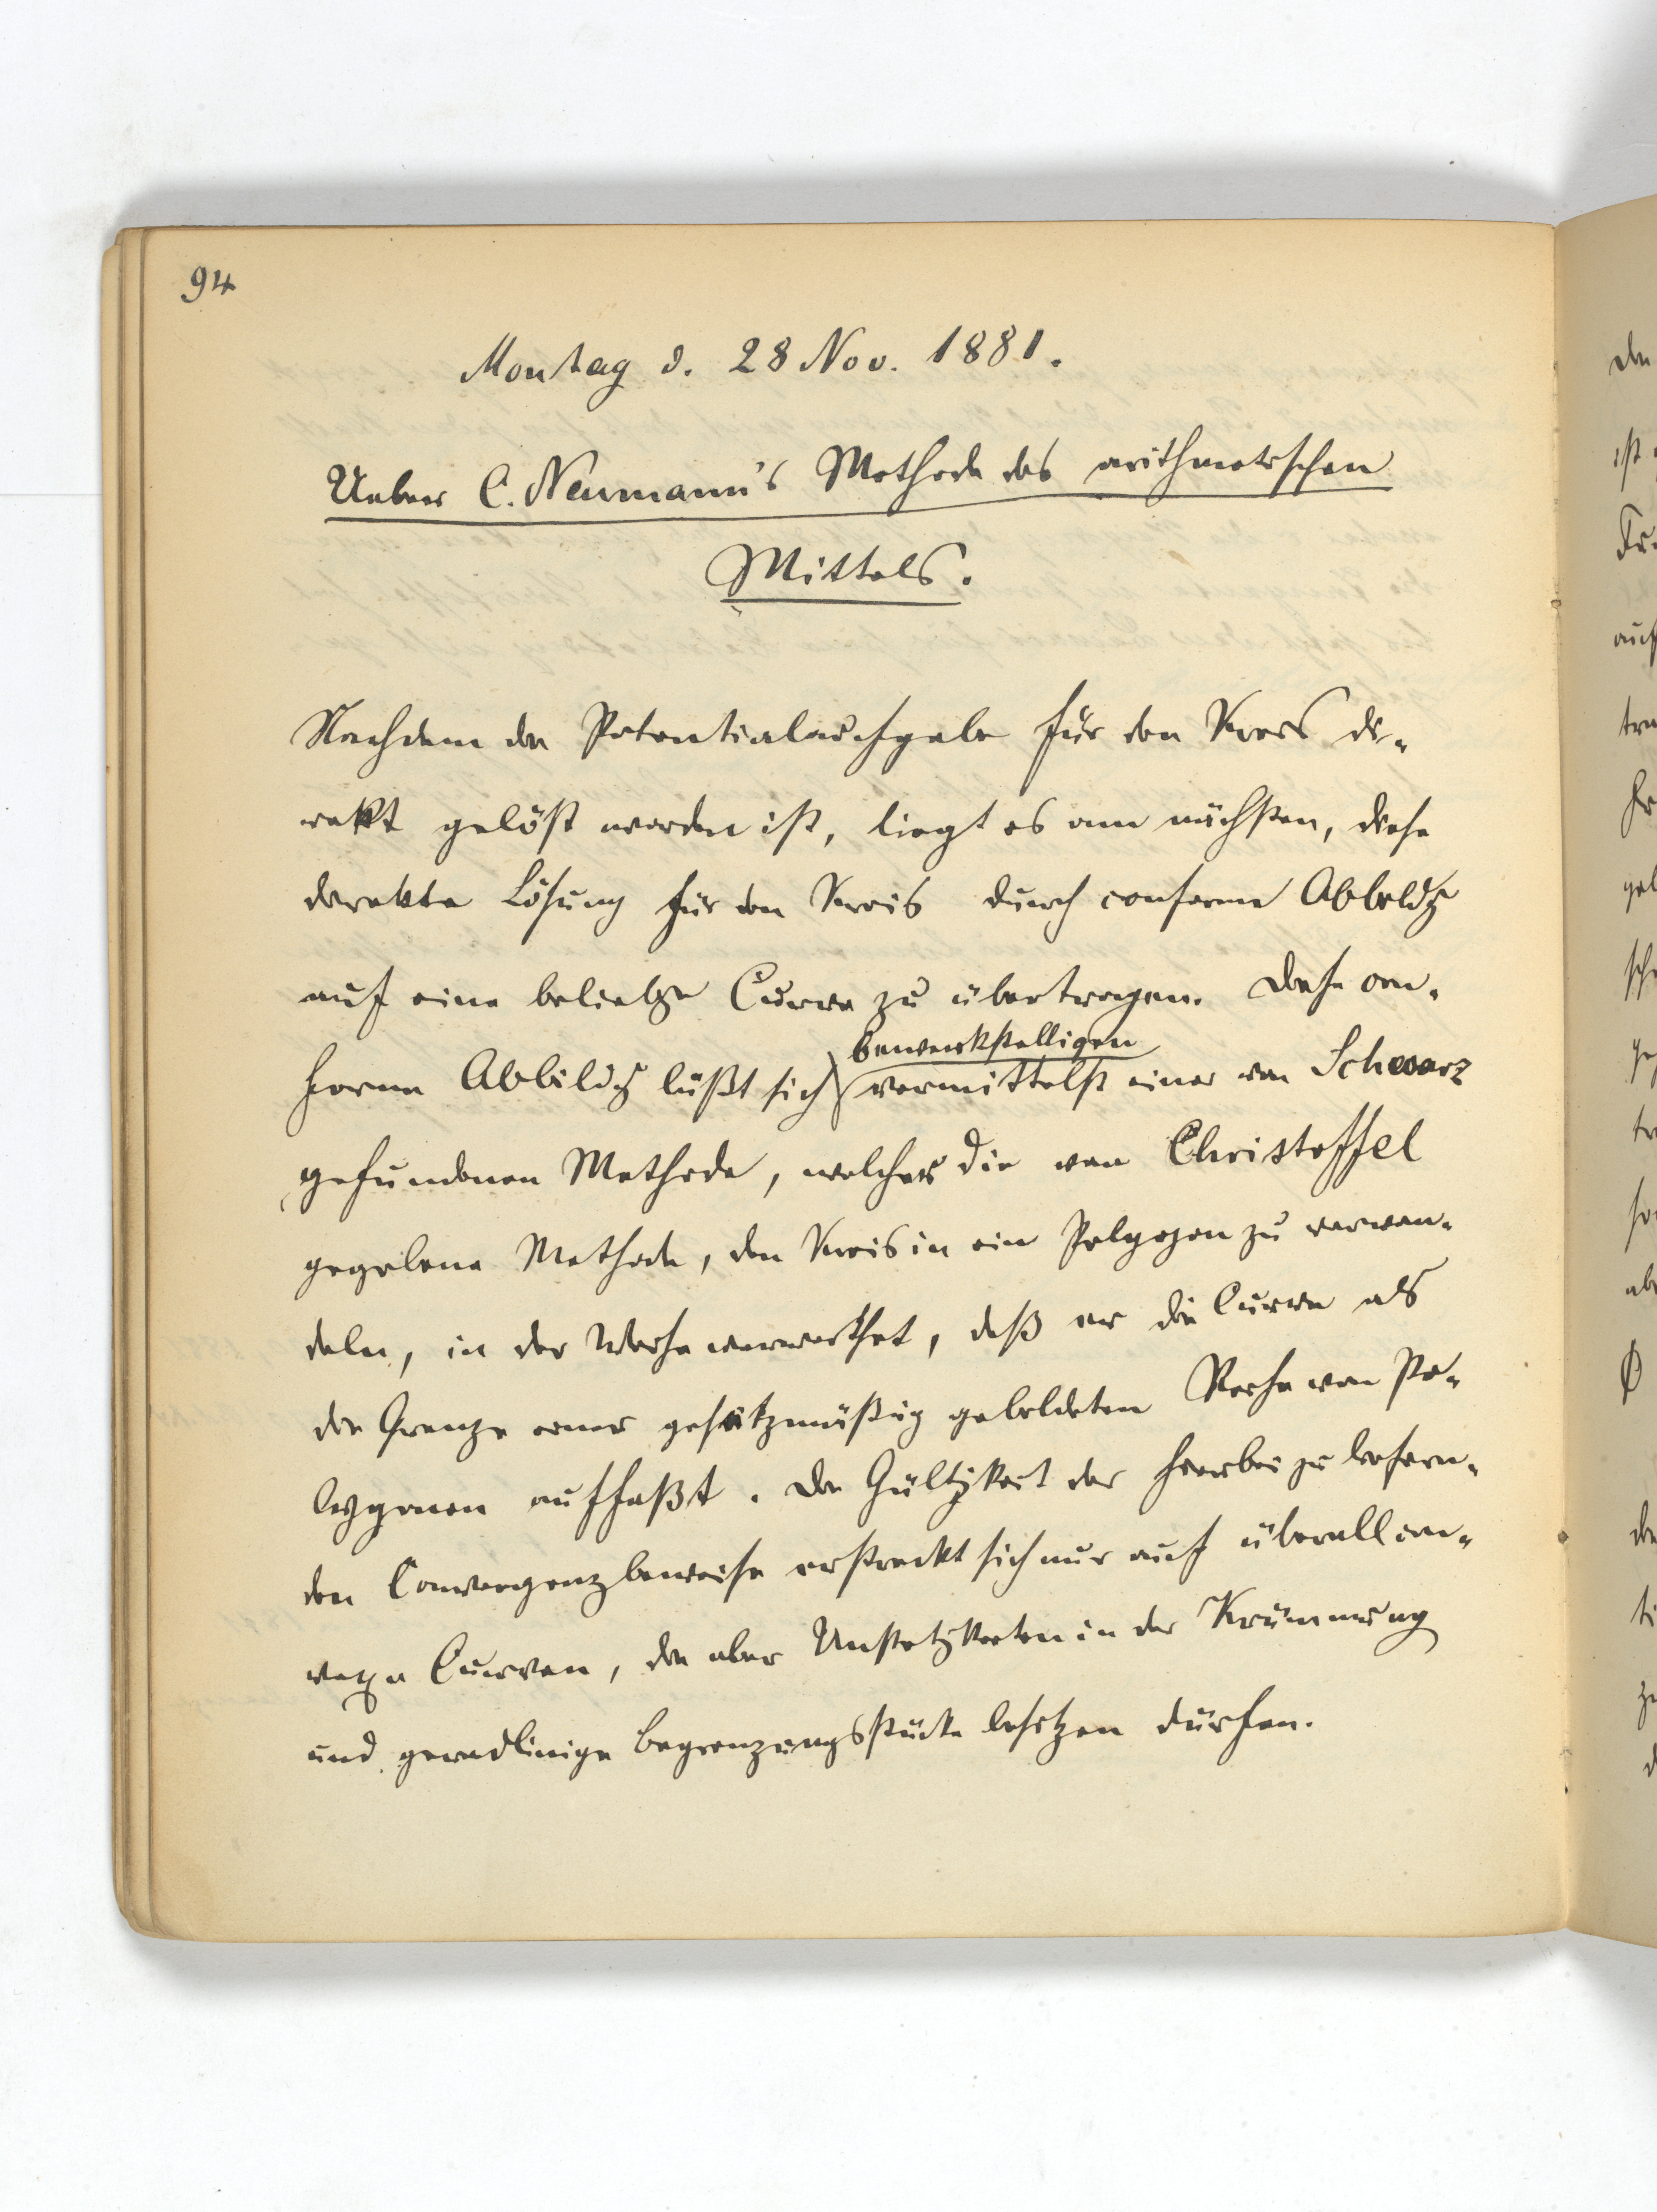 94
Montag d. 28 Nov. 1881.
Ueber C. Neumann's Methode des arithmetischen
Mittels.
Nachdem die Potentialaufgabe für den Kreis di-
rekt gelöst worden ist, liegt es am nächsten, diese
direkte Lösung für den Kreis durch conforme Abbildg
auf eine beliebge Curve zu übertragen. Diese con-
forme Abbildg läßt sich bewerkstelligen vermittelst einer von Schwarz
gefundenen Methode, welcher die von Christoffel
gegebene Methode, den Kreis in ein Polygon zu verwan-
deln, in der Weise verwerthet, daß er die Curve als
die Grenze einer gesetzmäßig gebildeten Reihe von Po-
lygonen auffaßt. Die Gültigkeit der hierbei zu liefern-
den Convergenzbeweise erstreckt sich nur auf überall con-
vexe Curven, die aber Unstetigkeiten in der Krümmung
und geradlinige Begrenzungsstücke besitzen dürfen.